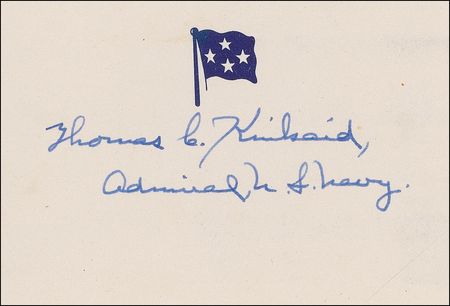 Thomas C. Kinkaid,
Admiral, U.S. Navy.